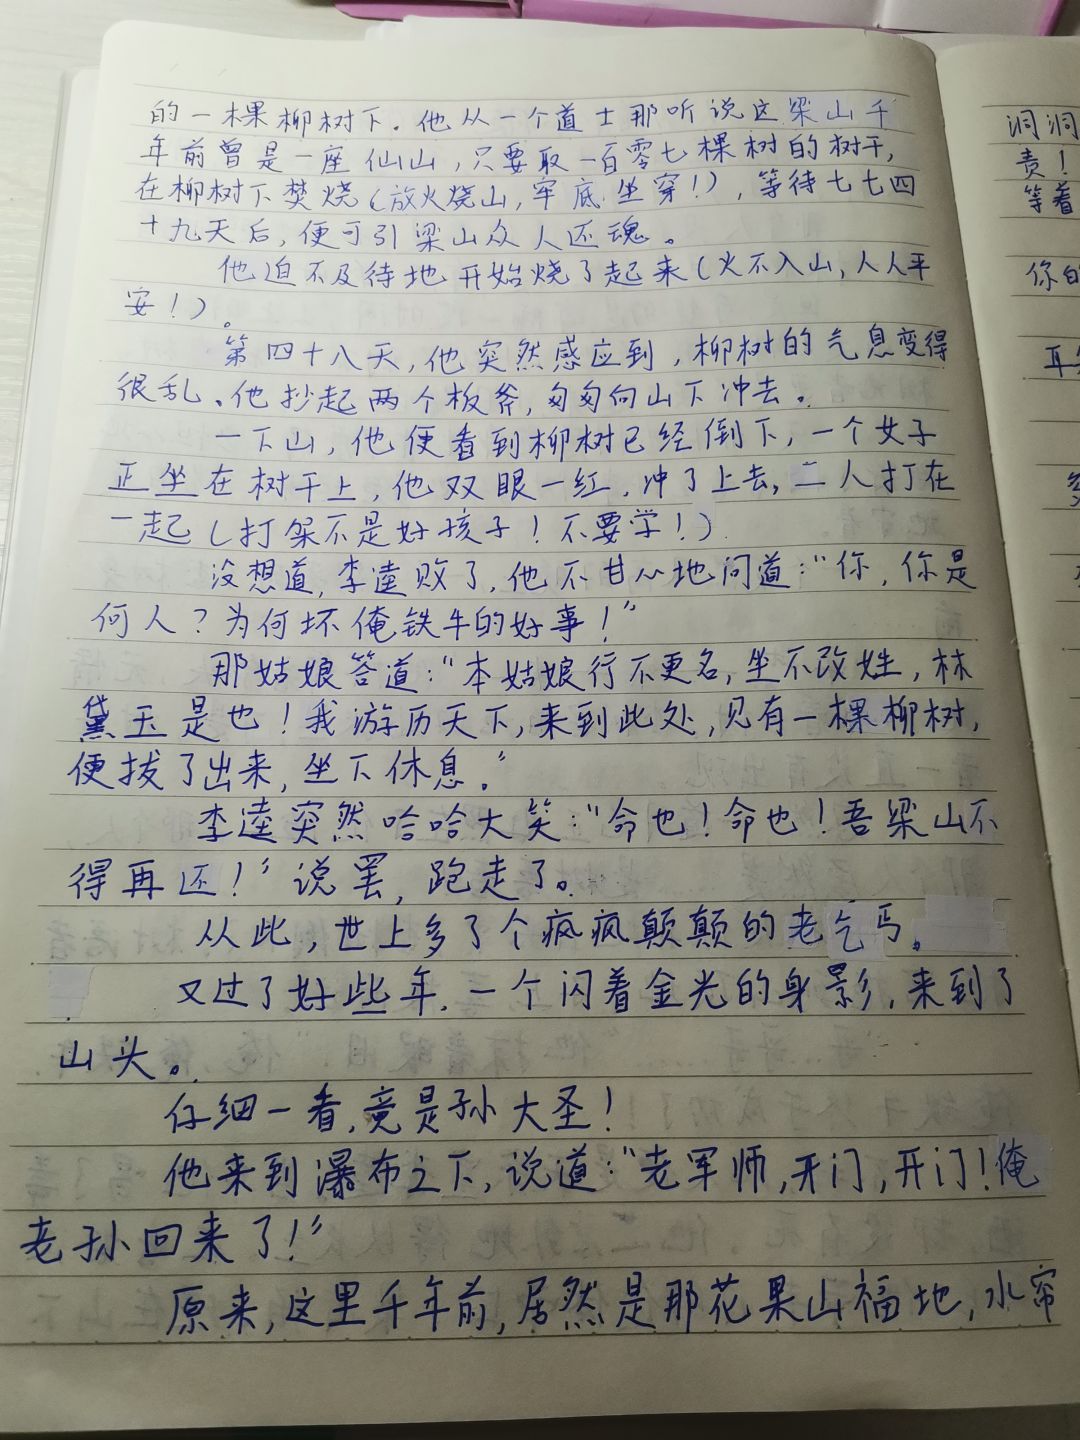 的一棵柳树下。他从一个道士那听说这梁山千
年前曾是一座仙山,只要取一百零七棵树的树干,
在柳树下焚烧(放火烧山,牢底坐穿!),等待七七四
十九天后,便可引梁山众人还魂。
他迫不及待地开始烧了起来(火不入山,人人平
安!)。
第四十八天,他突然感应到,柳树的气息变得
很乱。他抄起两个板斧,匆匆向山下冲去。
一下山,他便看到柳树已经倒下,一个女子
正坐在树干上,他双眼一红,冲了上去,二人打在
一起(打架不是好孩子!不要学!)
没想道,李逵败了,他不甘心地问道:“你,你是
何人?为何坏俺铁牛的好事!”
那姑娘答道:“本姑娘行不更名,坐不改姓,林
黛玉是也!我游历天下,来到此处,见有一棵柳树,
便拔了出来,坐下休息。”
李逵突然哈哈大笑:“命也!命也!吾梁山不
得再还!”说罢,跑走了。
从此,世上多了个疯疯颠颠的老乞丐。
又过了好些年,一个闪着金光的身影,来到了
山头。
仔细一看,竟是孙大圣!
他来到瀑布之下,说道:“老军师,开门,开门!俺
老孙回来了!”
原来,这里千年前,居然是那花果山福地,水帘
洞洞
责!
等着
你的